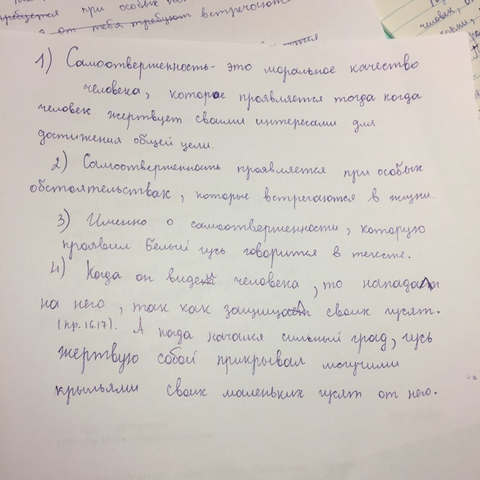 при особых
а от тебя требуют встречаются
1) Самоотверженность - это моральное качество
человека, которое проявляется тогда когда
человек жертвует своими интересами для
достижения общей цели.
2) Самоотверженность проявляется при особых
обстоятельствах, которые встречаются в жизни.
3) Именно о самоотверженности, которую
проявил белый гусь говорится в тексте.
4) Когда он видел человека, то нападал
на него, так как защищал своих гусят.
(пр. 16,17). А когда начался сильный град, гусь
жертвую собой прикрывал могучими
крыльями своих маленьких гусят от него.